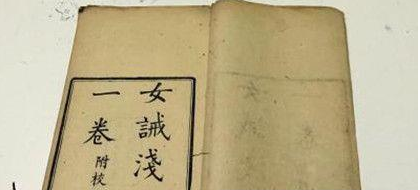 女誡淺
一卷附校